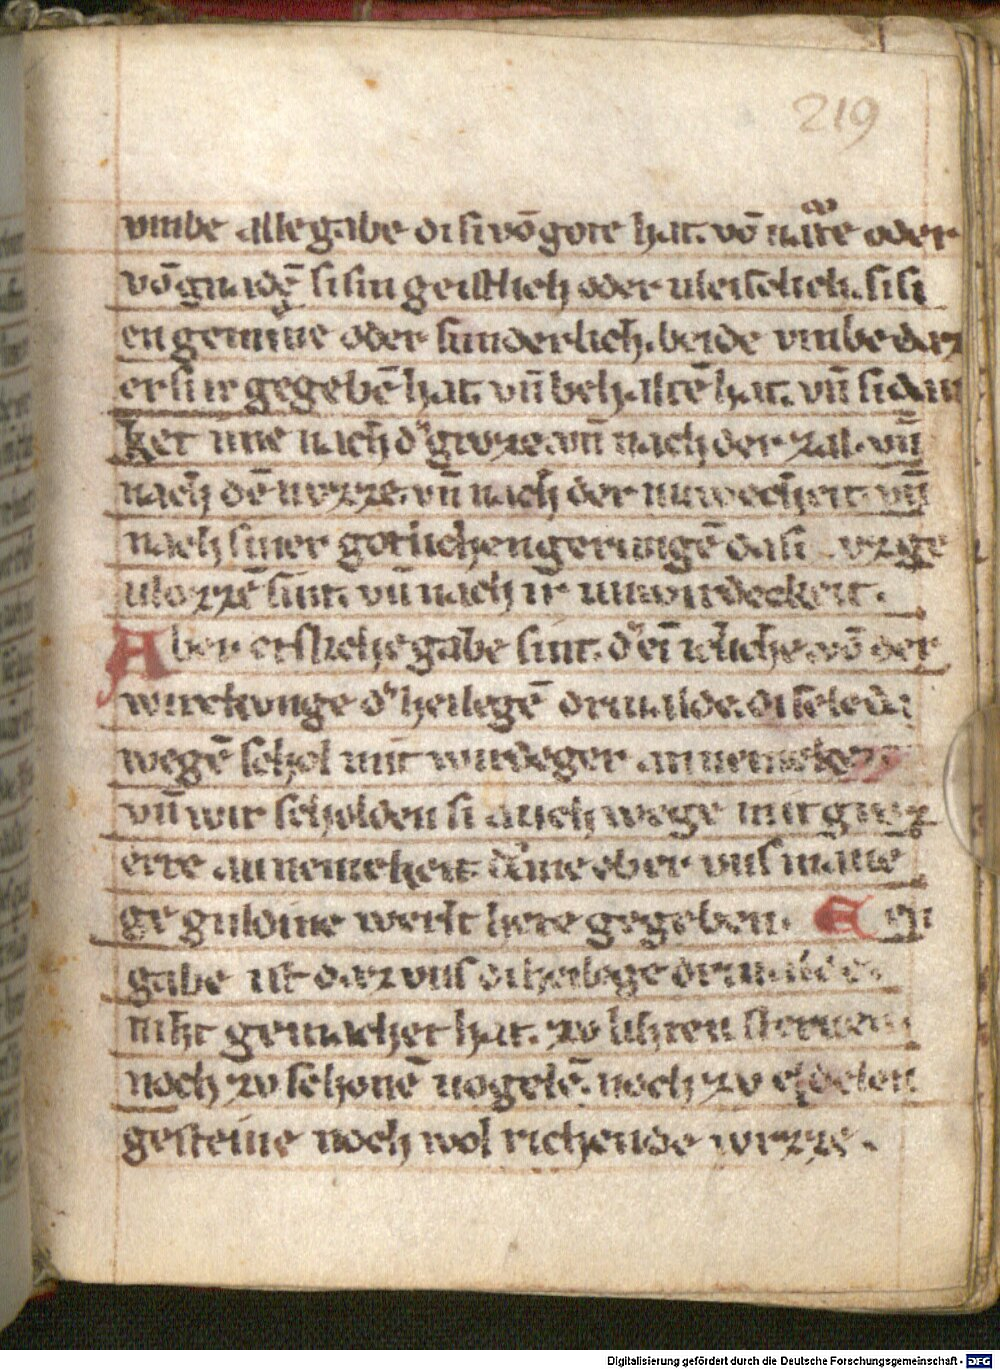 219
vmbe alle gabe di si võ gote hat. võ natᷓre oder
võ gnadē si sin geistlich oder vleischlich. si si
en gemeine oder sunderlich. beide vmbe daz
er si ir gegebē hat. vñ behaltē hat. vñ si dan
ket ime nach d' groze. vñ nach der zal. vñ
nach dē nvzze. vñ nach der
nach siner gotlichen gerunge da si vz ge
vlozzē sint. vñ nach ir vnwirdeckeit.
Aber etsliche gabe sint. d' võ der
wirckvnge d' heilegē drivalde. di sele da
wegē schol mit wirdeger annemekeit
vñ wir scholden si auch wege mit groz
erre annemekeit ober vns mane
ge guldine werlt here gegeben. Ein
gabe ist daz vns di heilege drivalde
niht gemachet hat. zv lihten sternen
noch zv schonē vogelē. noch zv edelen
gesteine noch wol richende wrzze.
Digitalisierung gefördert durch die Deutsche Forschungsgemeinschaft - DFG